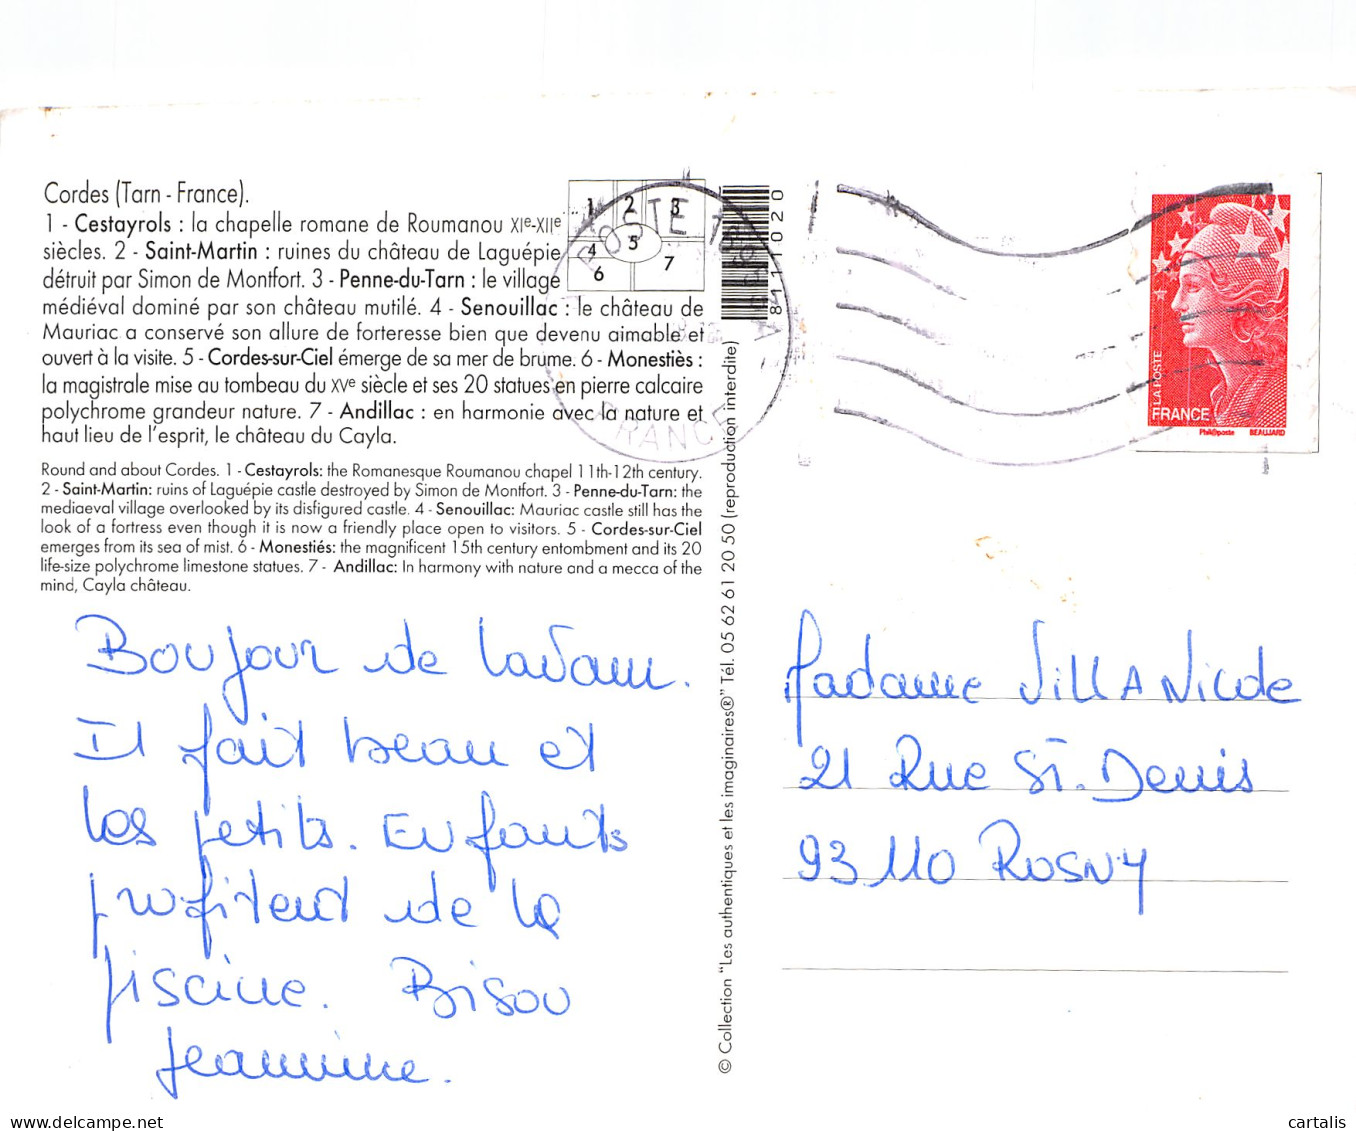 Cordes (Tarn - France).
1 - Cestayrols : la chapelle romane de Roumanou XIe-XIIe
siècles. 2 - Saint-Martin : ruines du château de Laguépie
détruit par Simon de Montfort. 3 - Penne-du-Tarn : le village
médiéval dominé par son château mutilé. 4 - Senouillac : le château de
Mauriac a conservé son allure de forteresse bien que devenu aimable et
ouvert à la visite. 5 - Cordes-sur-Ciel émerge de sa mer de brume. 6 - Monestiès :
la magistrale mise au tombeau du XVe siècle et ses 20 statues en pierre calcaire
polychrome grandeur nature. 7 - Andillac : en harmonie avec la nature et
haut lieu de l'esprit, le château du Cayla.
Round and about Cordes. 1 - Cestayrols: the Romanesque Roumanou chapel 11th-12th century.
2 - Saint-Martin: ruins of Laguépie castle destroyed by Simon de Montfort. 3 - Penne-du-Tarn: the
mediaeval village overlooked by its disfigured castle. 4 - Senouillac: Mauriac castle still has the
look of a fortress even though it is now a friendly place open to visitors. 5 - Cordes-sur-Ciel
emerges from its sea of mist. 6 - Monestiés: the magnificent 15th century entombment and its 20
life-size polychrome limestone statues. 7 - Andillac: In harmony with nature and a mecca of the
mind, Cayla château.
1 2 3
4 5
6 7
8411020
LA POSTE
FRANCE
Phil@poste BEAUJARD
POSTE
FRANCE
© Collection "Les authentiques et les imaginaires®" Tél. 05 62 61 20 50 (reproduction interdite)
Boujour de
Il fait beau et
les petits. Enfants
profitent de la
piscine. Bisou
Jeannine.
Madame VILLA Nicole
21 Rue St. Denis
93110 ROSNY
delcampe.net
cartalis